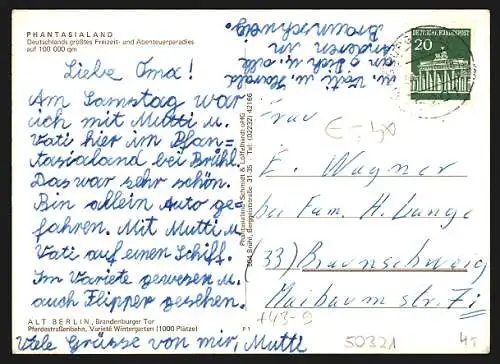 PHANTASIALAND
Deutschlands größtes Freizeit- und Abenteuerparadies
auf 100 000 qm
Liebe Oma!
Am Samstag war
ich mit Mutti u.
Vati hier im Phan=
tasialand bei Brühl.
Das war sehr schön.
Bin allein Auto ge-
fahren. Mit Mutti u.
Vati auf einen Schiff.
Im Variete gewesen u.
auch Flipper gesehen.
ALT BERLIN, Brandenburger Tor
Pferdestraßenbahn, Varieté Wintergarten (1000 Plätze)
Viele Grüsse von mir, Mutti
u. Vati u. Harald
an Dich u. alle
anderen in
Braunschweig.
Phantasialand, Schmidt & Löffelhardt oHG
504 Brühl, Berggeiststraße 31-35 · Tel. (02232) 42166
P 1
DEUTSCHE BUNDESPOST
20
Frau
E. Wagner
bei Fam. H. Lange
(33) Braunschweig
Maibaum str. 7i
+43-9
50321